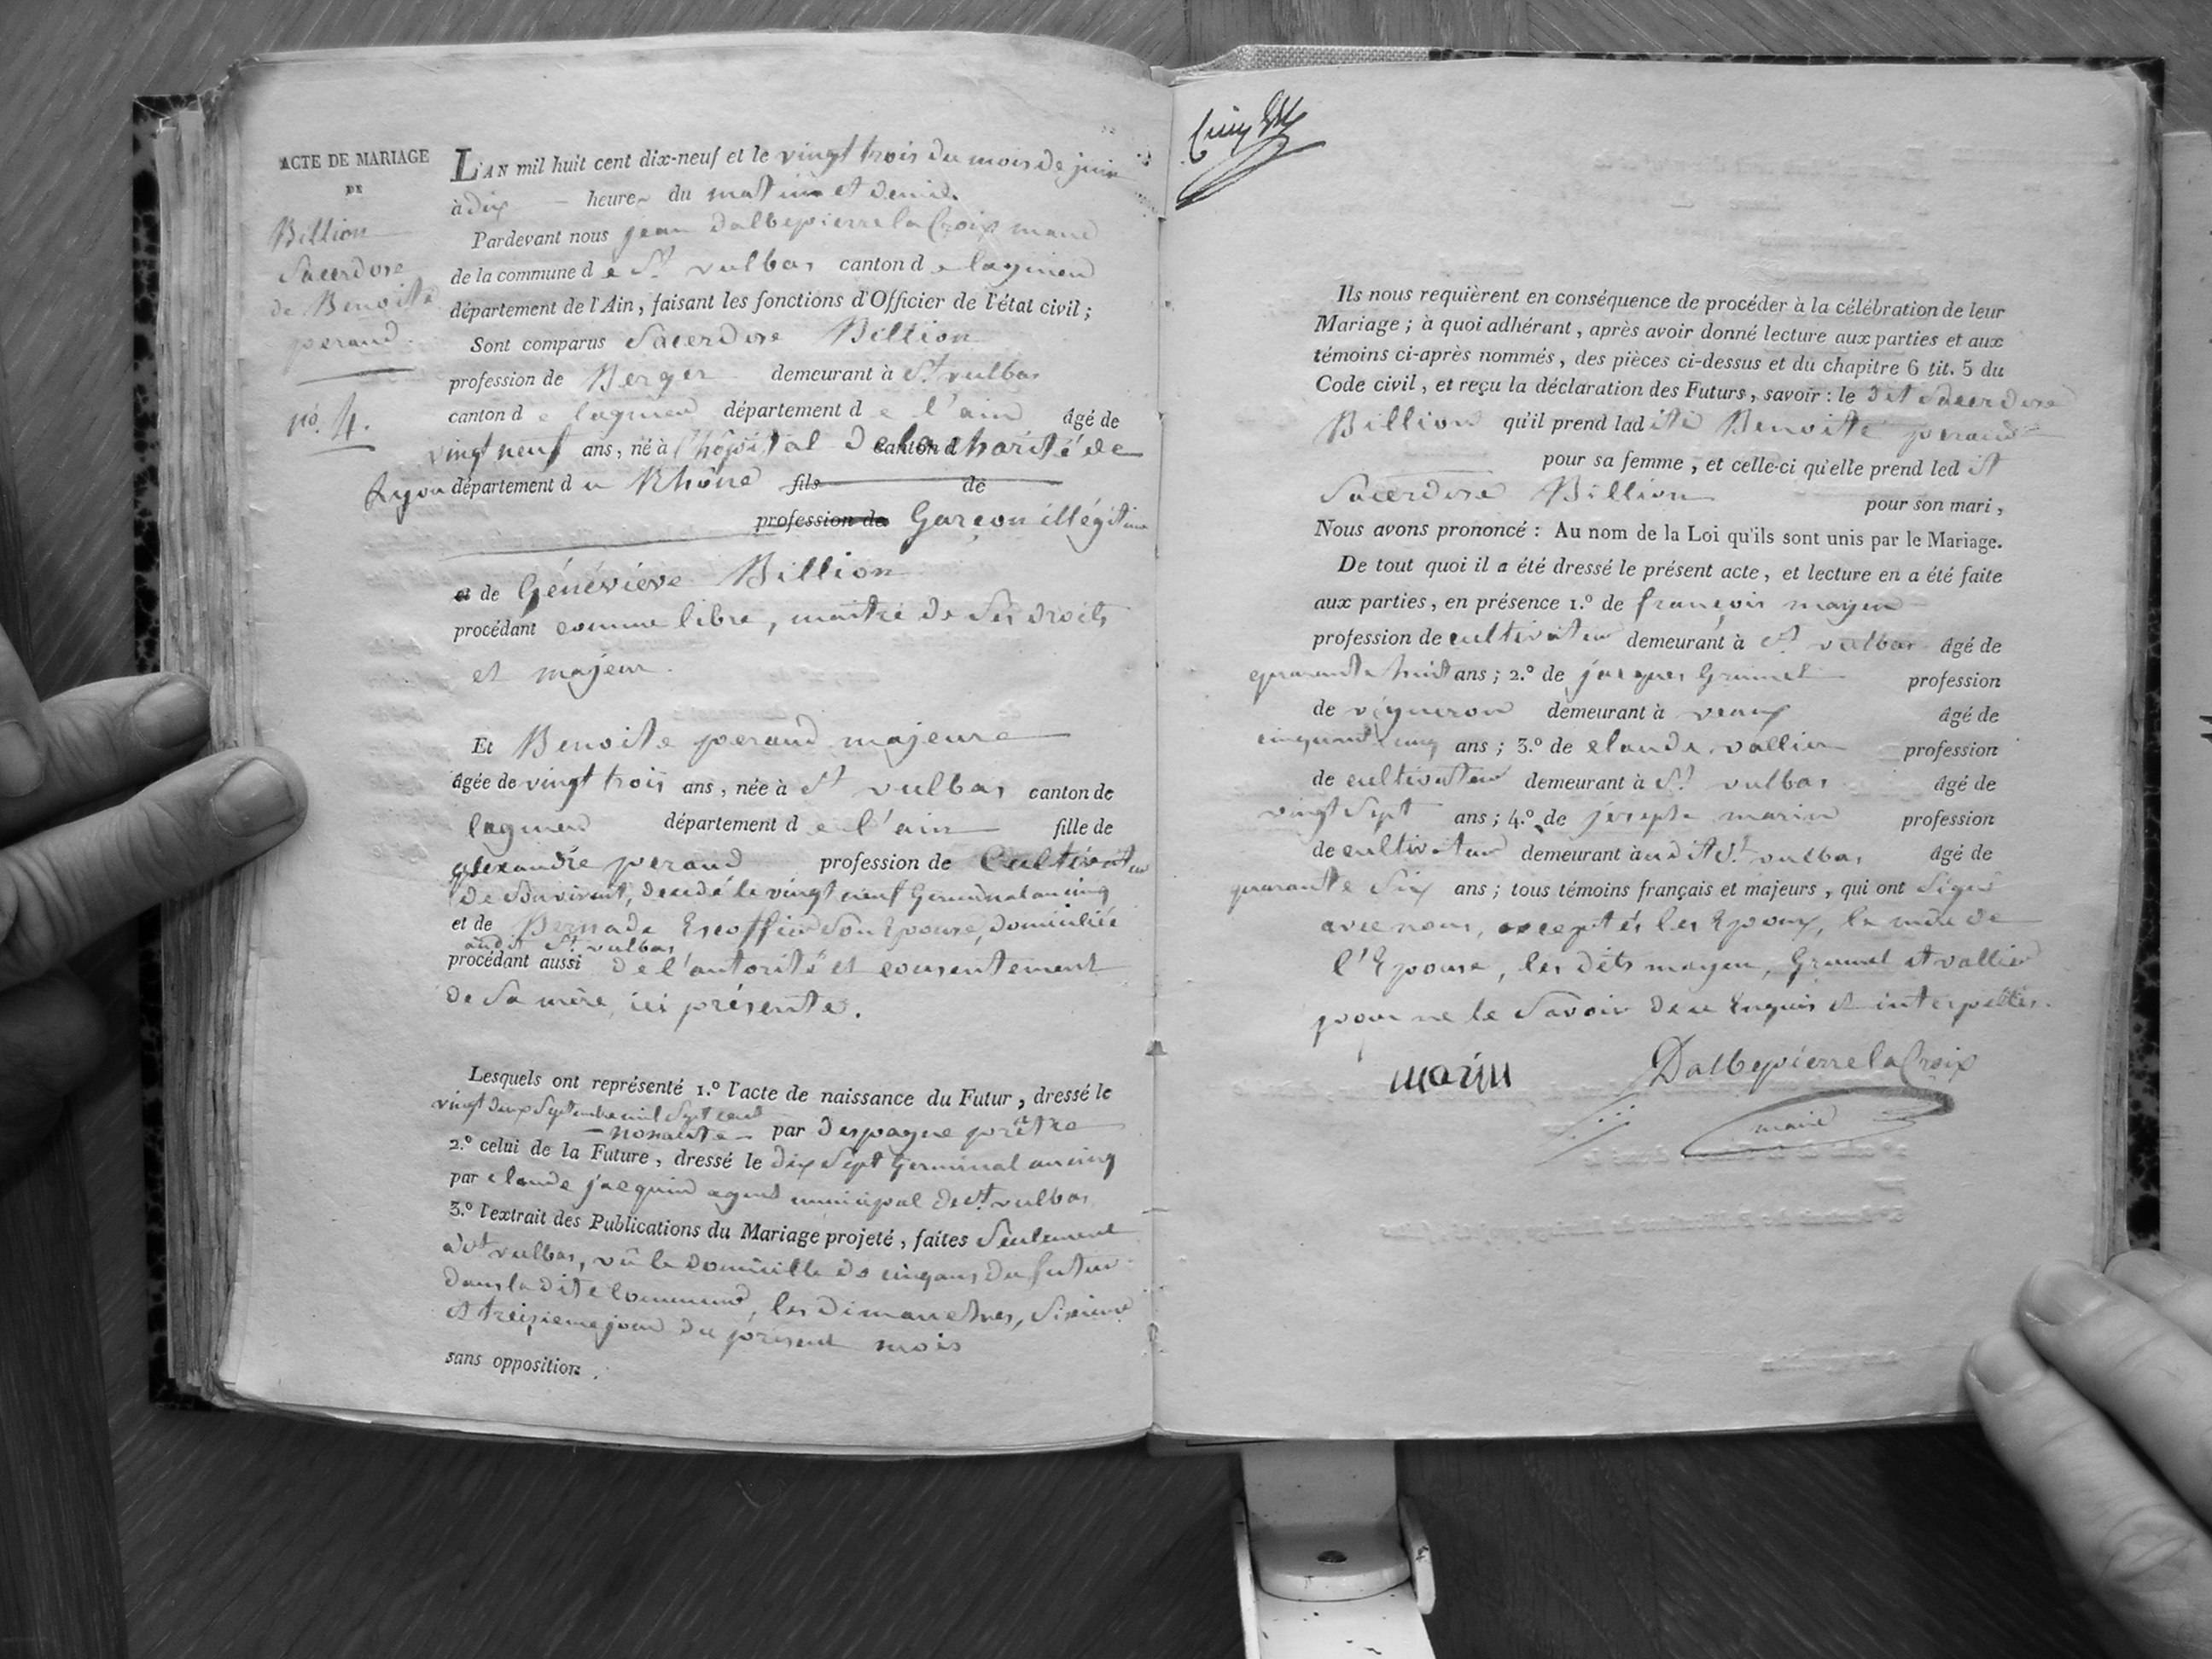 ACTE DE MARIAGE
DE
Billion
Sacerdose
de Benoite
peraud.
no. 4.
L'AN mil huit cent dix-neuf et le vingt trois du mois de juin
à dix heures du matin et demie.
Pardevant nous jean Dalbepierre la Croix maire
de la commune de St. vulbas canton de lagnieu
département de l'Ain, faisant les fonctions d'Officier de l'état civil ;
Sont comparus Sacerdose Billion
profession de Berger demeurant à St. vulbas
canton de lagnieu département de l'ain âgé de
vingt neuf ans, né à l'hopital de la canton d charité de
Lyon département du Rhône fils de
profession de Garçon illégitime
et de Généviéve Billion
procédant comme libre, maitre de ses droits
et majeur.
Et Benoite peraud majeure
âgée de vingt trois ans, née à St vulbas canton de
lagnieu département de l'ain fille de
alexandre peraud profession de Cultivateur
de son vivant, décédé le vingt neuf Germinal an cinq
et de Bernade Escoffier son Epouse, domiciliée
audit St. vulbas
procédant aussi de l'autorité et consentement
de sa mère, ici présente.
Lesquels ont représenté 1.º l'acte de naissance du Futur, dressé le
vingt deux Septembre mil Sept cent
nonante par despagne prêtre
2.º celui de la Future, dressé le dix Sept Germinal an cinq
par claude jacquin agent municipal de St. vulbas
3.º l'extrait des Publications du Mariage projeté, faites Seulement
à St vulbas, vû le domicille de cinq ans du futur
dans la dite Commune, les dimanches, Sixieme
et treizieme jour du présent mois
sans opposition.
Ils nous requièrent en conséquence de procéder à la célébration de leur
Mariage ; à quoi adhérant, après avoir donné lecture aux parties et aux
témoins ci-après nommés, des pièces ci-dessus et du chapitre 6 tit. 5 du
Code civil, et reçu la déclaration des Futurs, savoir : le dit Sacerdose
Billion qu'il prend ladite Benoite peraud
pour sa femme, et celle-ci qu'elle prend ledit
Sacerdose Billion pour son mari,
Nous avons prononcé : Au nom de la Loi qu'ils sont unis par le Mariage.
De tout quoi il a été dressé le présent acte, et lecture en a été faite
aux parties, en présence 1.º de françois mayeu
profession de cultivateur demeurant à St. vulbas âgé de
quarante huit ans ; 2.º de jacques Grumel profession
de vigneron demeurant à veaux âgé de
cinquante cinq ans ; 3.º de claude vallier profession
de cultivateur demeurant à St. vulbas âgé de
vingt Sept ans ; 4.º de joseph marin profession
de cultivateur demeurant audit St. vulbas âgé de
quarante Six ans ; tous témoins français et majeurs, qui ont Signé
avec nous, exceptés les Epoux, la mère de
l'Epouse, les dits mayeu, Grumel et vallier
pour ne le Savoir de ce Enquis et interpellés.
marin DalbepierrelaCroix
maire